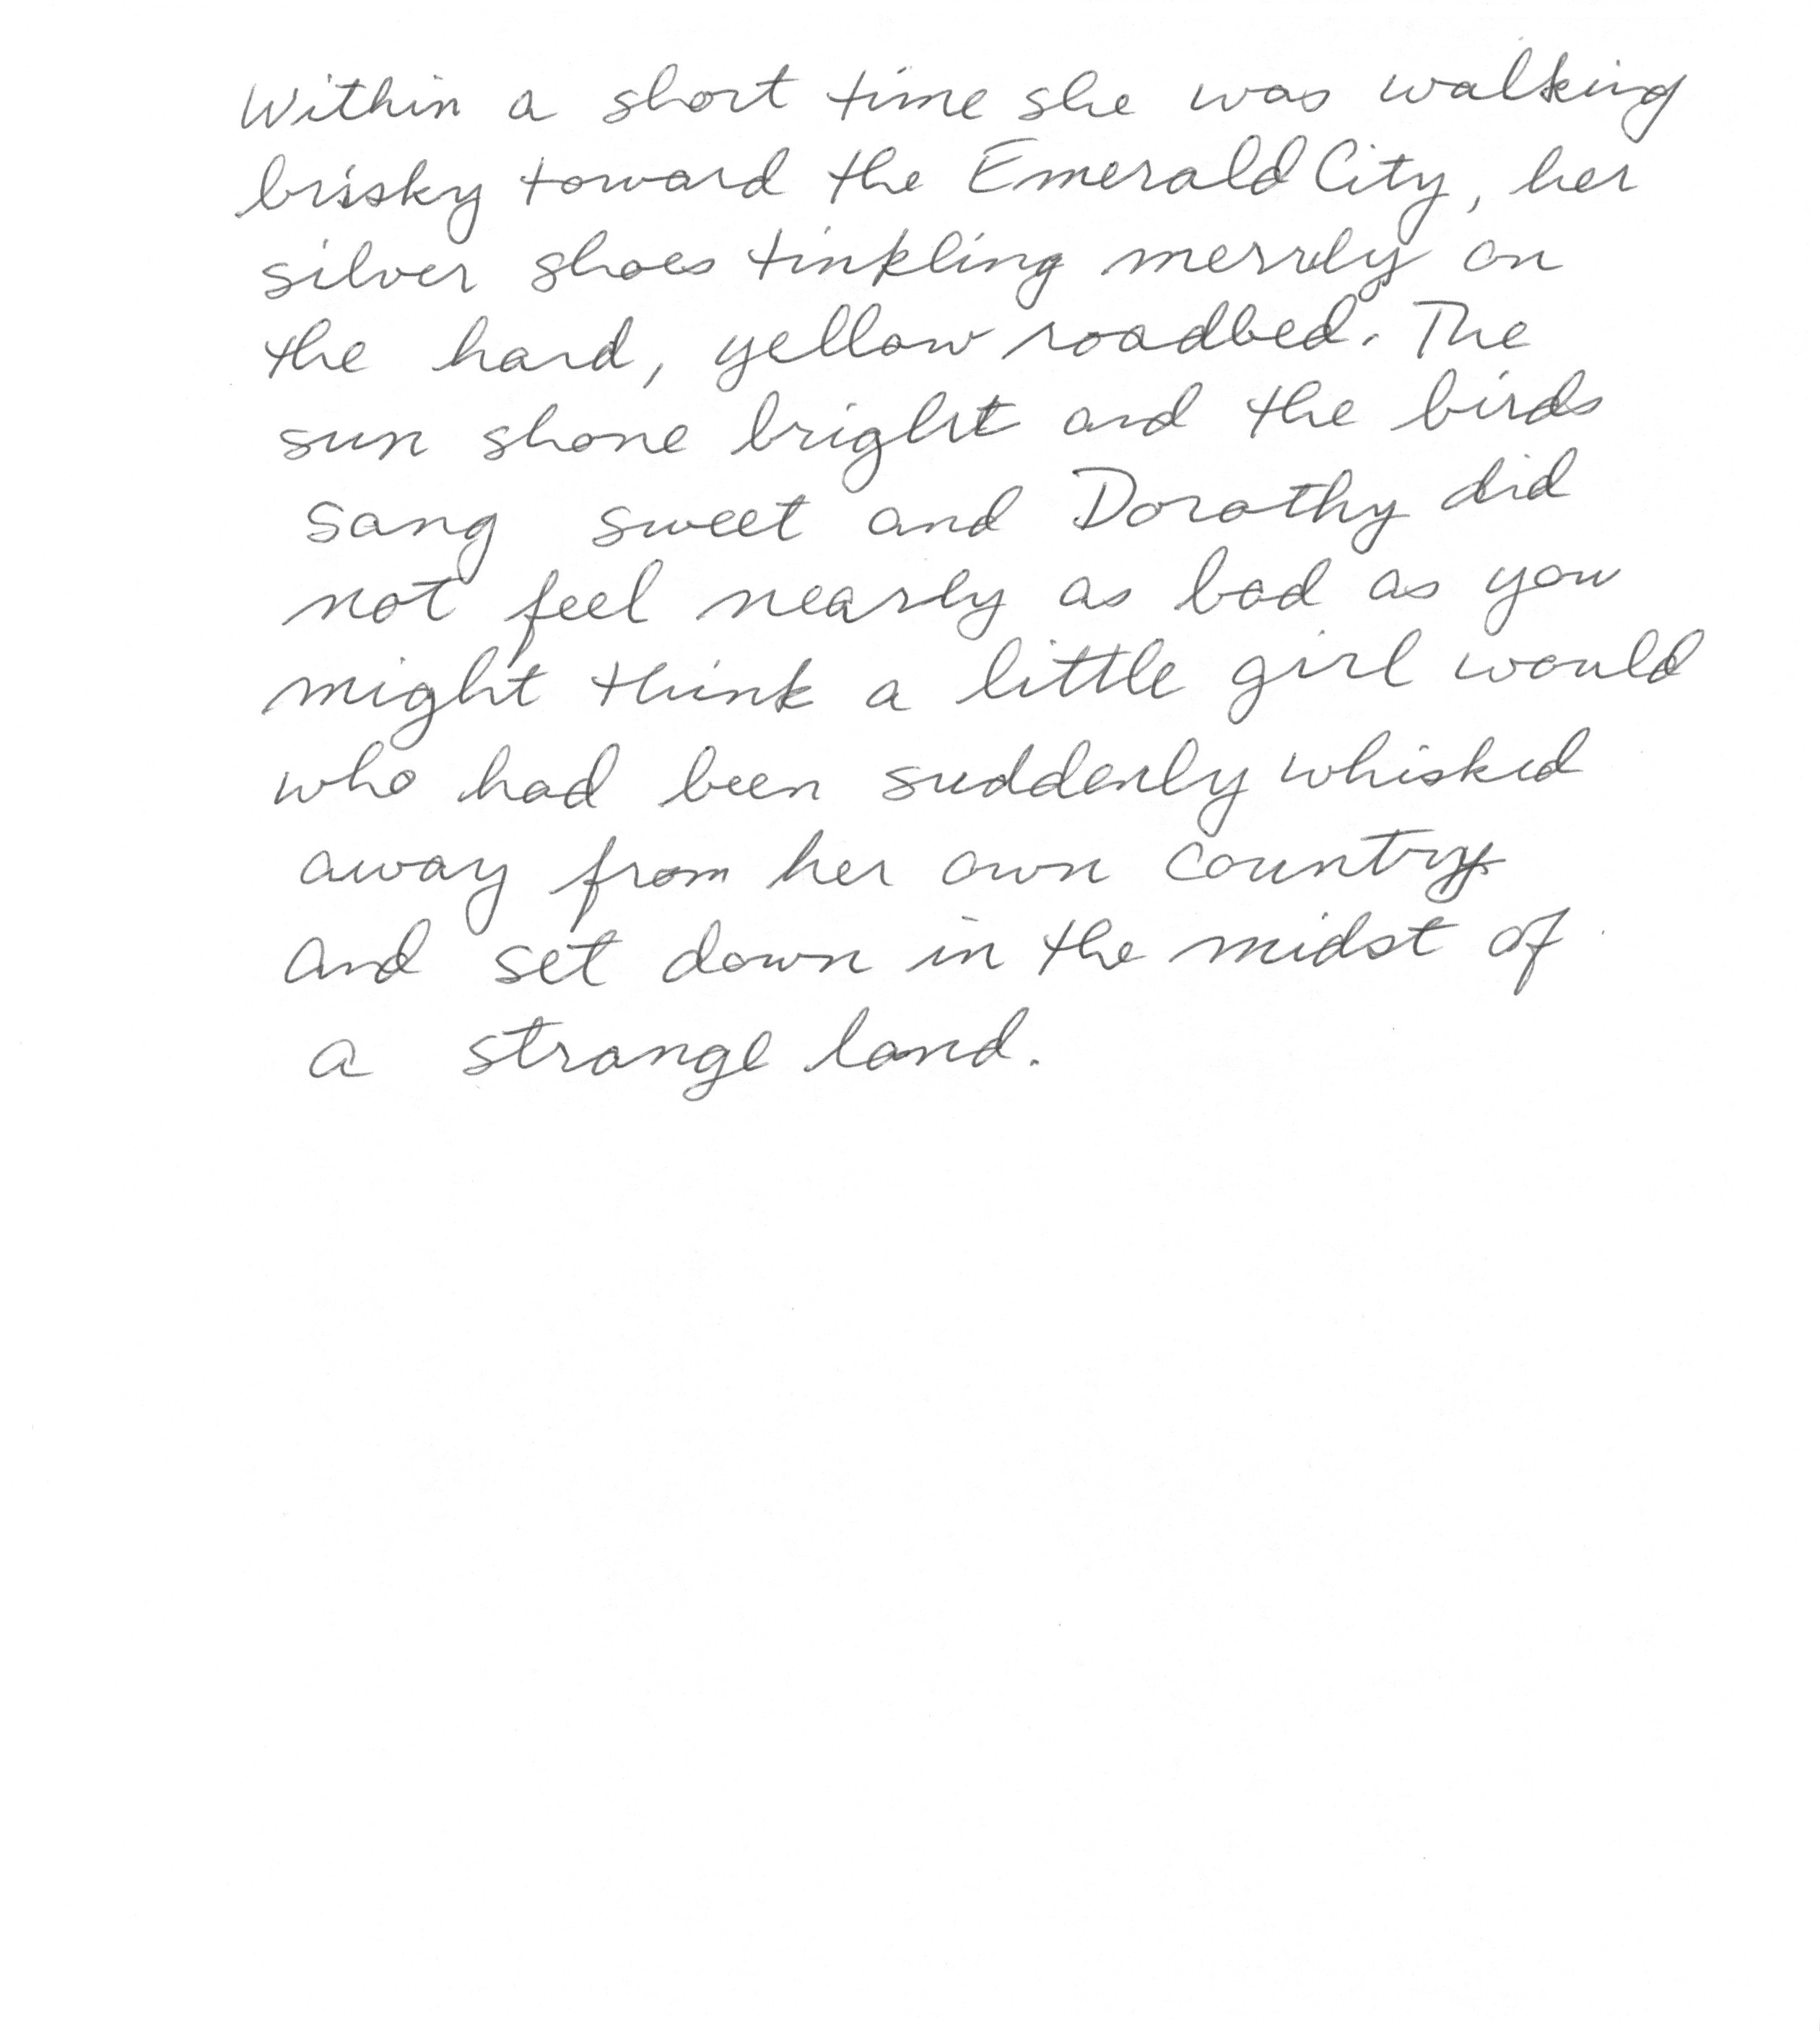 Within a short time she was walking
brisky toward the Emerald City, her
silver shoes tinkling merrily on
the hard, yellow roadbed. The
sun shone bright and the birds
sang sweet and Dorothy did
not feel nearly as bad as you
might think a little girl would
who had been suddenly whisked
away from her own country
and set down in the midst of
a strange land.